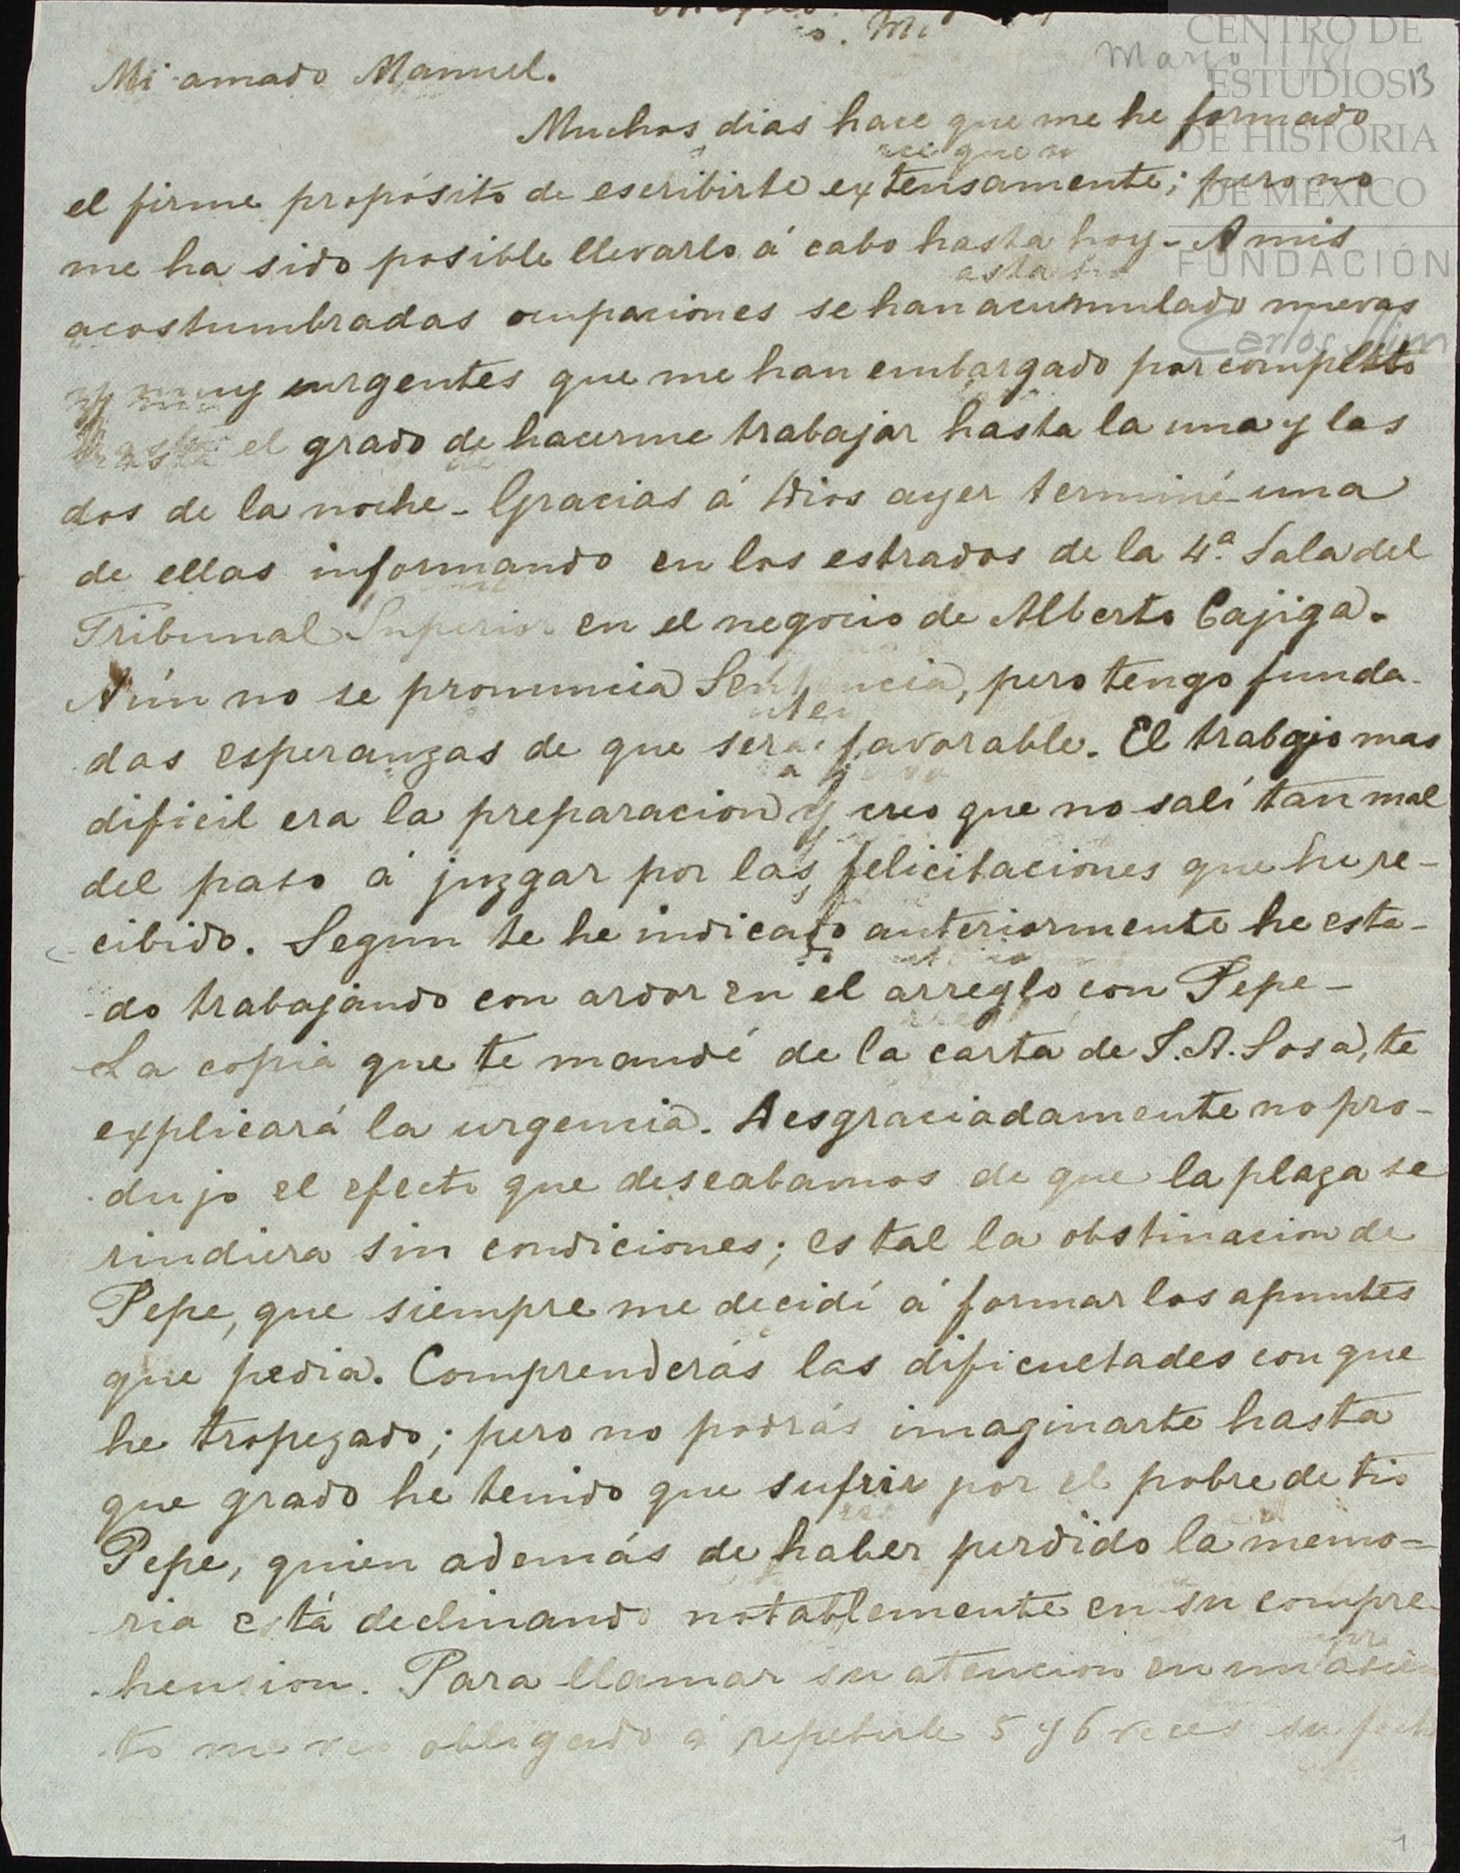 Mi amado Manuel.
Marzo 18
13
CENTRO DE
ESTUDIOS
DE HISTORIA
DE MÉXICO
FUNDACIÓN
Carlos Slim
Muchos dias hace que me he formado
el firme propósito de escribirte extensamente; pero no
me ha sido posible llevarlo á cabo hasta hoy_ A mis
acostumbradas ocupaciones se han acumulado nuevas
y muy urgentes que me han embargado por completo
hasta el grado de hacerme trabajar hasta la una y las
dos de la noche_ Gracias á Dios ayer terminé una
de ellas informando en los estrados de la 4ª Sala del
Tribunal Superior en el negocio de Alberto Cajiga.
Aún no se pronuncia Sentencia, pero tengo funda-
das esperanzas de que será favorable. El trabajo mas
dificil era la preparacion y creo que no salí tan mal
del paso á juzgar por las felicitaciones que he re-
cibido. Segun te he indicado anteriormente he esta-
do trabajando con ardor en el arreglo con Pepe_
La copia que te mandé de la carta de S. A. Sosa, te
explicará la urgencia. Desgraciadamente no pro-
dujo el efecto que deseabamos de que la plaza se
rindiera sin condiciones; es tal la obstinacion de
Pepe, que siempre me decidí á formar los apuntes
que pedia. Comprenderás las dificultades con que
he tropezado; pero no podrás imaginarte hasta
que grado he tenido que sufrir por el pobre de tio
Pepe, quien además de haber perdido la memo-
ria está declinando notablemente en su compre-
hension. Para llamar su atencion en un asien
to me veo obligado á repetirle 5 y 6 veces su fecha
1